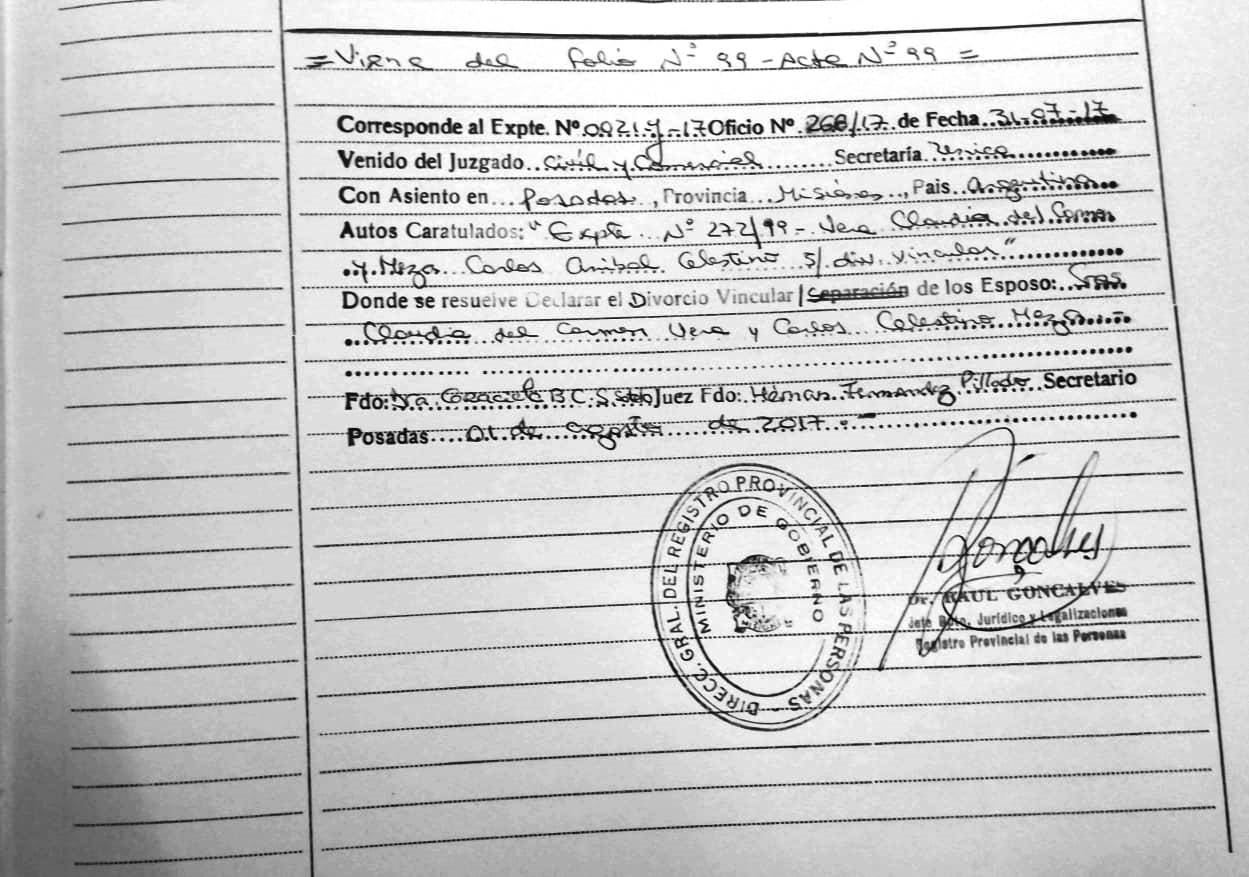 = Viene del folio N° 99 - Acta N° 99 =
Corresponde al Expte. Nº 0021-Y-17 Oficio Nº 268/17 de Fecha 31-07-17
Venido del Juzgado Civil y Comercial Secretaría Unica
Con Asiento en Posadas, Provincia Misiones, Pais Argentina
Autos Caratulados: "Expte N° 272/99 - Vera Claudia del Carmen
y Meza Carlos Anibal Celestino S/ div. vincular"
Donde se resuelve Declarar el Divorcio Vincular | Separación de los Esposo: Sres
Claudia del Carmen Vera y Carlos Celestino Meza
Fdo: Dra. Graciela B.C.S. Soto Juez Fdo: Hernan Fernandez Pillado Secretario
Posadas 01 de agosto de 2017.-
DIRECC. GRAL. DEL REGISTRO PROVINCIAL DE LAS PERSONAS -
MINISTERIO DE GOBIERNO
Dr. RAUL GONCALVES
Jefe Dpto. Jurídico y Legalizaciones
Registro Provincial de las Personas